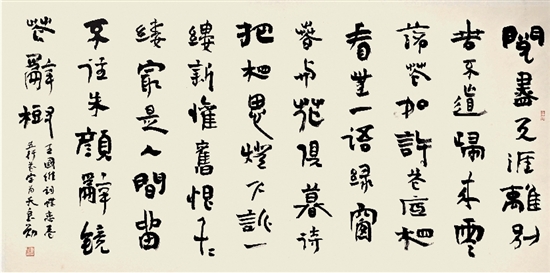 閱盡天涯離別
苦不道歸來零
落花如許花底相
看無一語綠窗
春与花俱暮待
把相思燈下訴一
縷新懽舊恨千〻
縷最是人間留
不住朱顏辭鏡
花辭樹
王國維詞蝶恋花